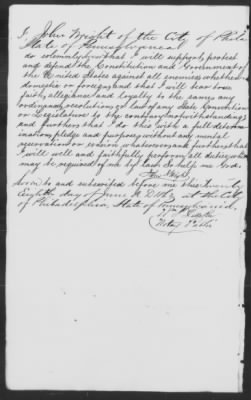 I, John Wright of the City of Phila
State of Pennsylvania
do solemnly swear that I will support, protect
and defend the Constitution and Government of
the United States against all enemies whether
domestic or foreign and that I will bear true
faith, allegiance and loyalty to the same, any
ordinance, resolution or law of any State Convention
or Legislature to the contrary notwithstanding
and further that I do this with a full determi-
nation, pledge and purpose, without any mental
reservation or evasion whatsoever and further that
I will well and faithfully perform all duties which
may be required of me by law so help me God.
John Wright
Sworn to and subscribed before me this twenty
eighth day of June A. D. at the City
of Philadelphia, State of Pennsylvania,
Notary Public